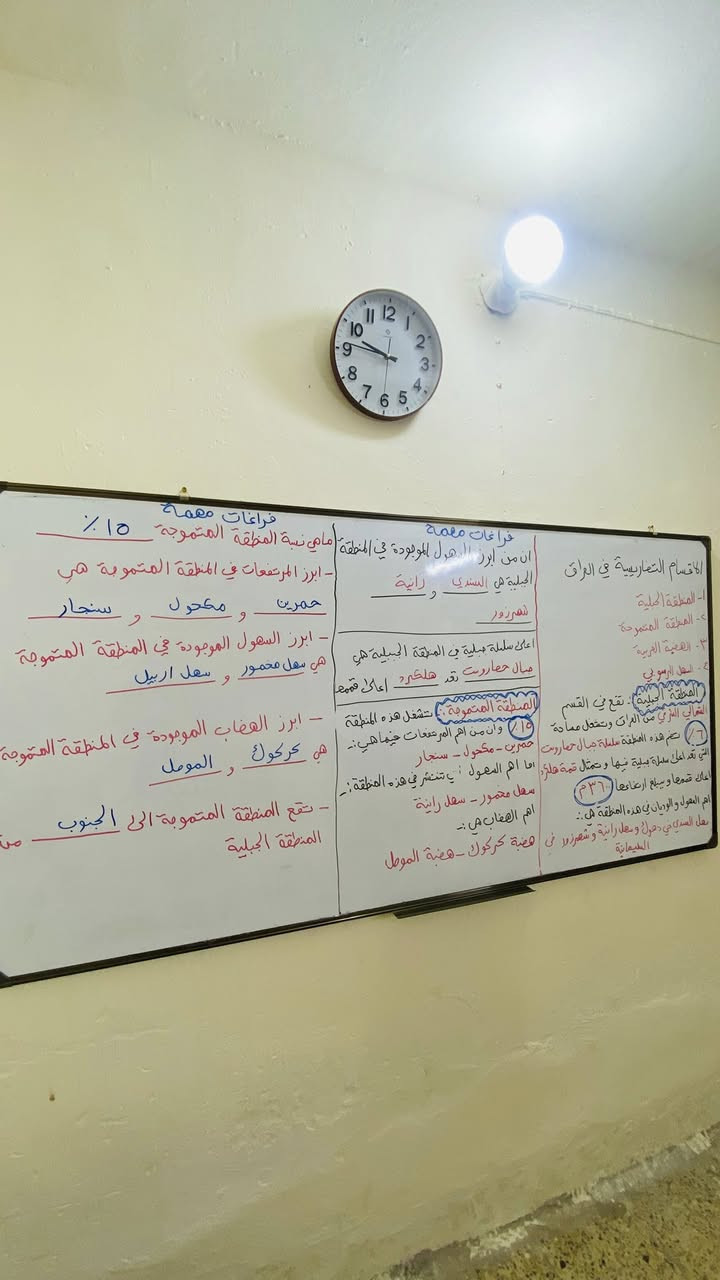 12
1
2
3
4
5
6
7
8
9
10
11
الاقسام التضاريسية في العراق
١- المنطقة الجبلية
٢- المنطقة المتموجة
٣- الهضبة الغربية
٤- السهل الرسوبي
المنطقة الجبلية :. تقع في القسم
الشمالي الشرقي من العراق وتشغل مساحة
٦٪ تضم هذه المنطقة سلسلة جبال حصاروست
التي تعد اعلى سلسلة جبلية فيها وتمثال قمة هلكرد
اعلى قممها ويبلغ ارتفاعها ٣٦٠٠م
اهم السهول والوديان في هذه المنطقة هي :.
سهل السندي في دهوك و سهل رانية و شهرزور في
السليمانية
فراغات مهمة
ان من ابرز السهول الموجودة في المنطقة
الجبلية هي السندي و رانية
شهرزور
اعلى سلسلة جبلية في المنطقة الجبلية هي
جبال حصاروست تعد هلكرد اعلى قممها
المنطقة المتموجة :. تشغل هذه المنطقة
١٥٪ وان من اهم المرتفعات فيها هي :-
حمرين - مكحول - سنجار
اما اهم السهول :ـ تنتشر في هذه المنطقة :-
سهل مخمور - سهل رانية
اهم الهضاب هي :-
هضبة كركوك - هضبة الموصل
فراغات مهمة
ماهي نسبة المنطقة المتموجة ١٥٪
- ابرز المرتفعات في المنطقة المتموجة هي
حمرين و مكحول و سنجار
- ابرز السهول الموجودة في المنطقة المتموجة
هي سهل مخمور و سهل اربيل
- ابرز الهضاب الموجودة في المنطقة المتموجة
هي كركوك و الموصل
- تقع المنطقة المتموجة الى الجنوب من
المنطقة الجبلية